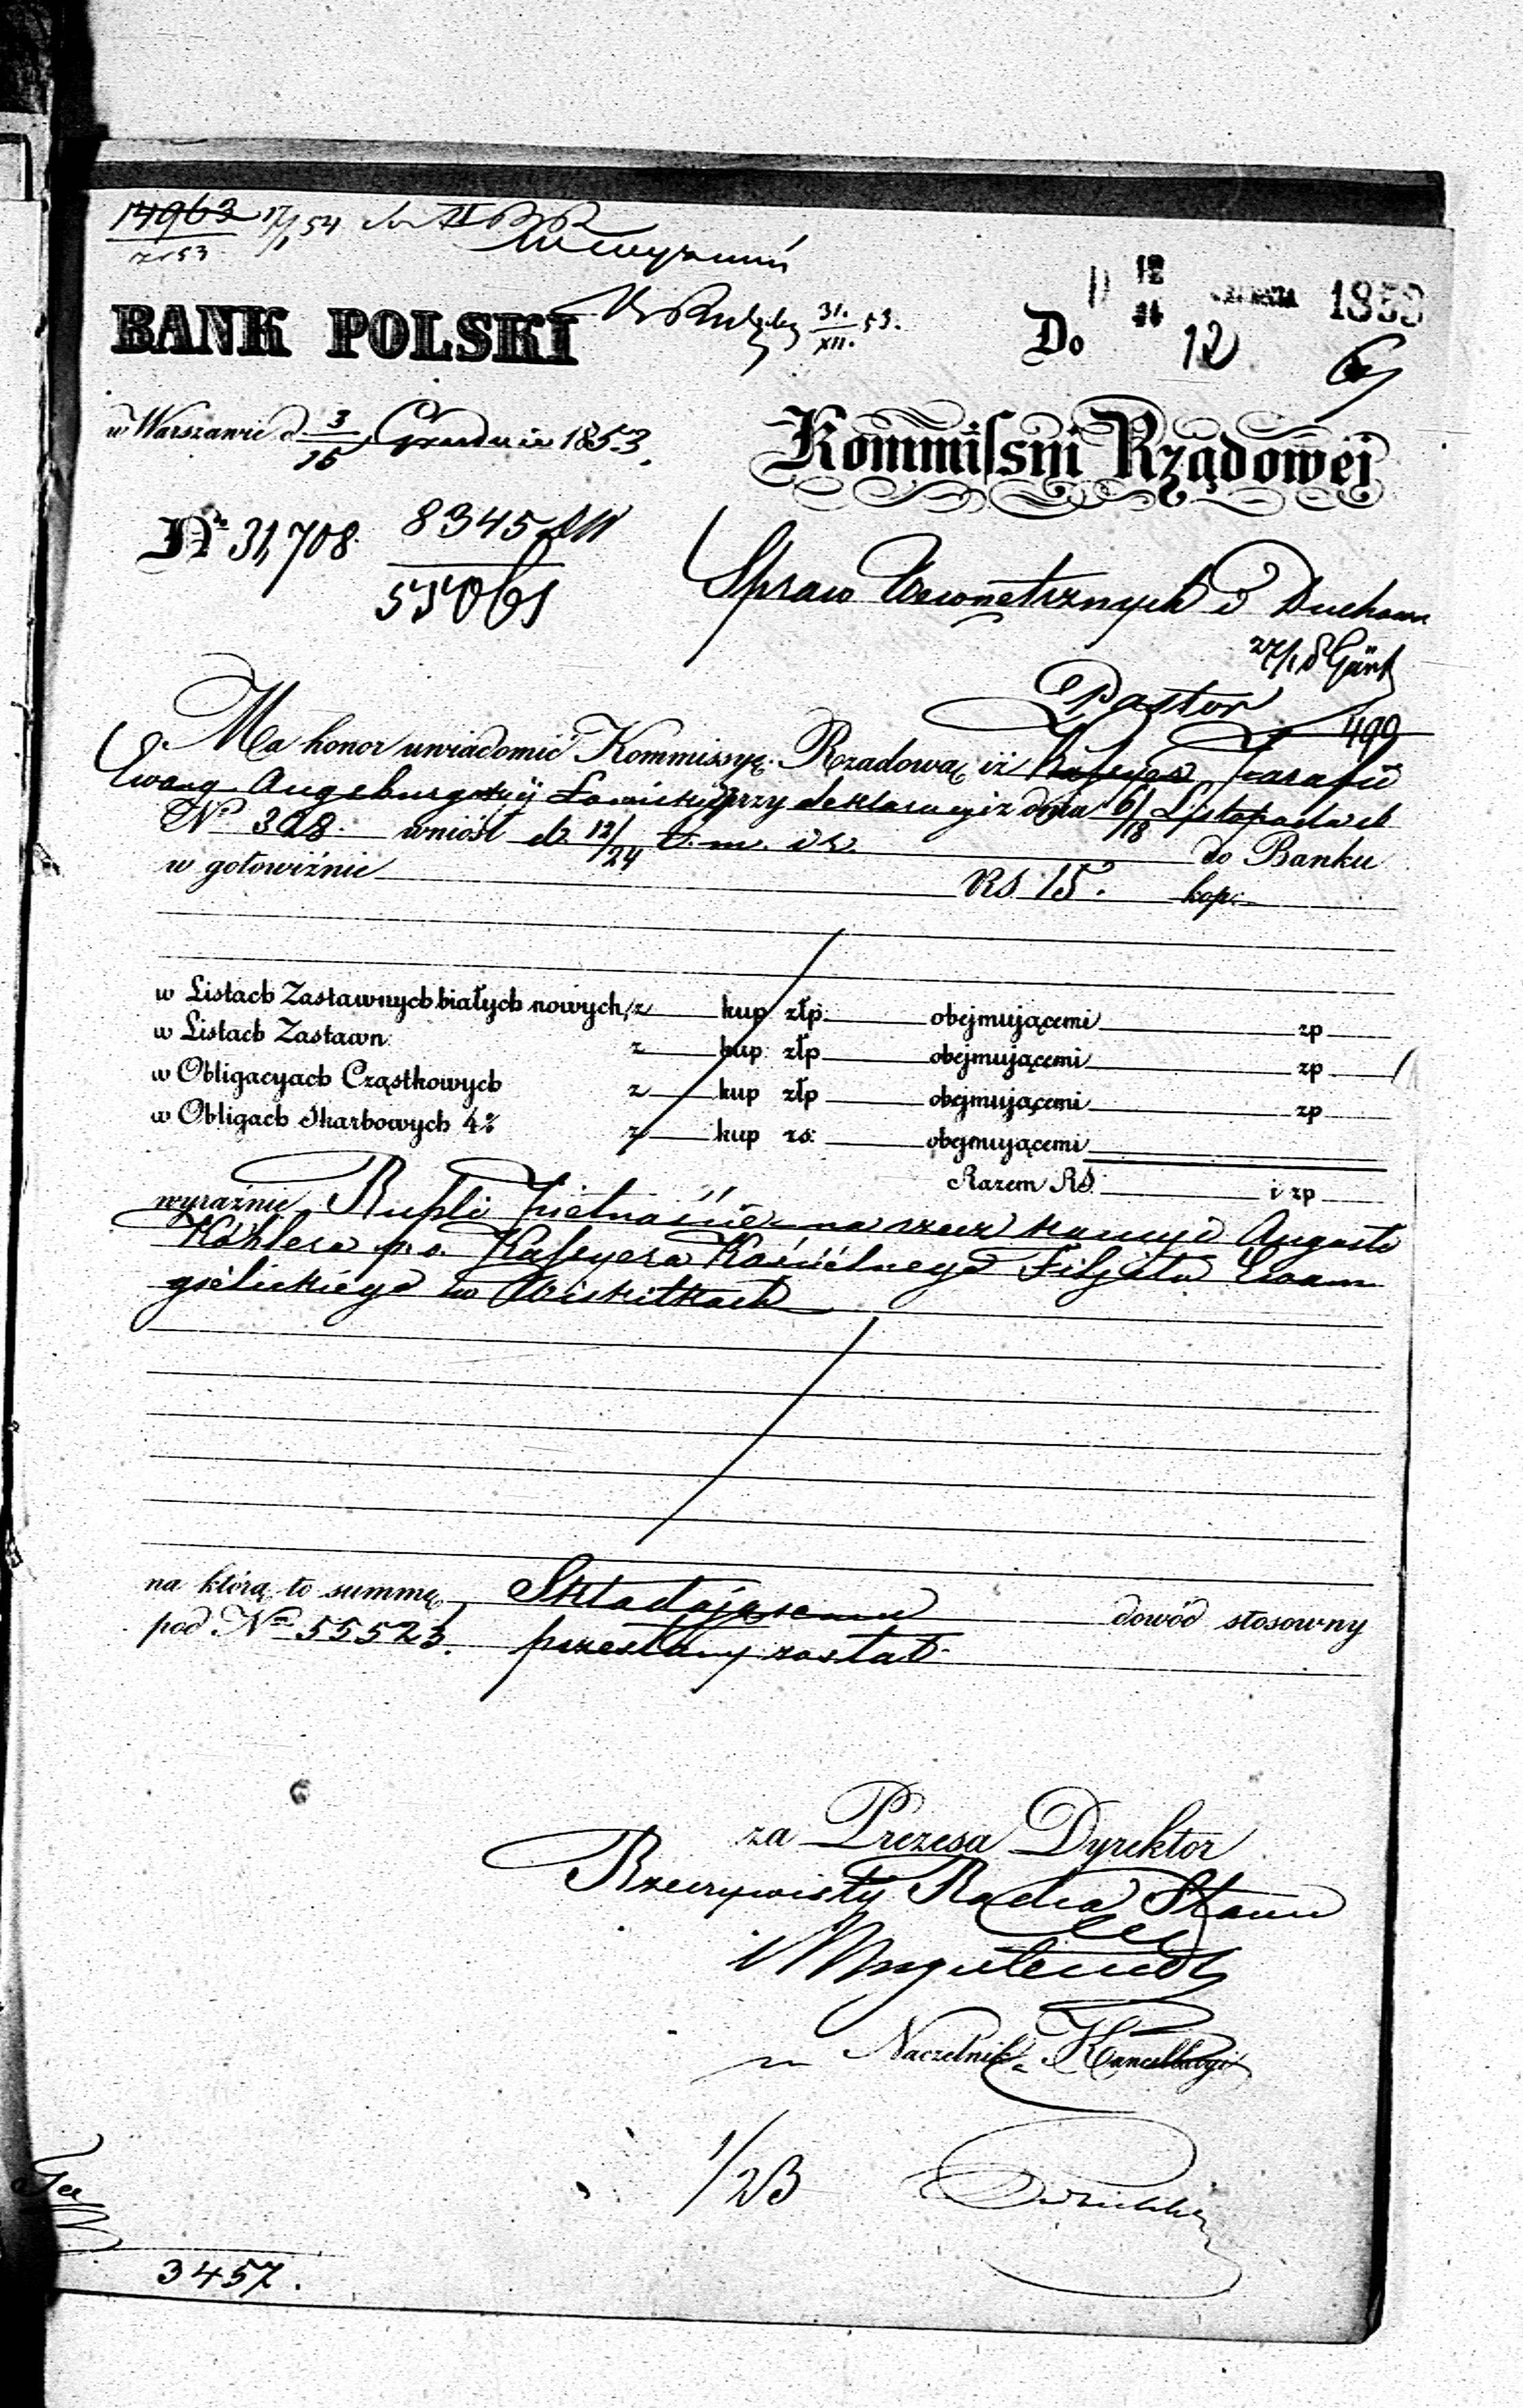 14963 17/1 54
z 53
31./XII. 53.
BANK POLSKI
Do
12 1853
12
w Warszawie d. 3/15 Grudnia 1853.
Kommissyi Rządowej
No 31,708. 8345
55061
Spraw Wewnętrznych i Duchown
27/1
Pastor
499
Ma honor uwiadomić Kommissyę Rządową iż Kassyer Parafii
Ewang Augsburgskiéj Łowickiéj przy deklaracyi z dnia 6/18 Listopada r b
No 398. wniósł d. 12/24 t. m. i r. do Banku
w gotowiźnie RS. 15. kop:
w Listach Zastawnych białych nowych, z kup złp. obejmującemi zp
w Listach Zastawn. z kup: złp obejmującemi zp
w Obligacyach Cząstkowych z kup złp obejmującemi zp
w Obligach Skarbowych 4% z kup rs: obejmującemi
Razem RS. i zp
wyraźnie Rubli Piętnaście na rzecz kaucyi Augusta
Köhlera p. o. Kassyera Kościelnego Filjału Ewan
gielickiego w Wiskitkach
na którą to summę Składającemu dowód stosowny
pod Nem 55523. przesłany został.
za Prezesa Dyrektor
Rzeczywisty Radca Stanu
Naczelnik Kancellaryi
1/23
3457.